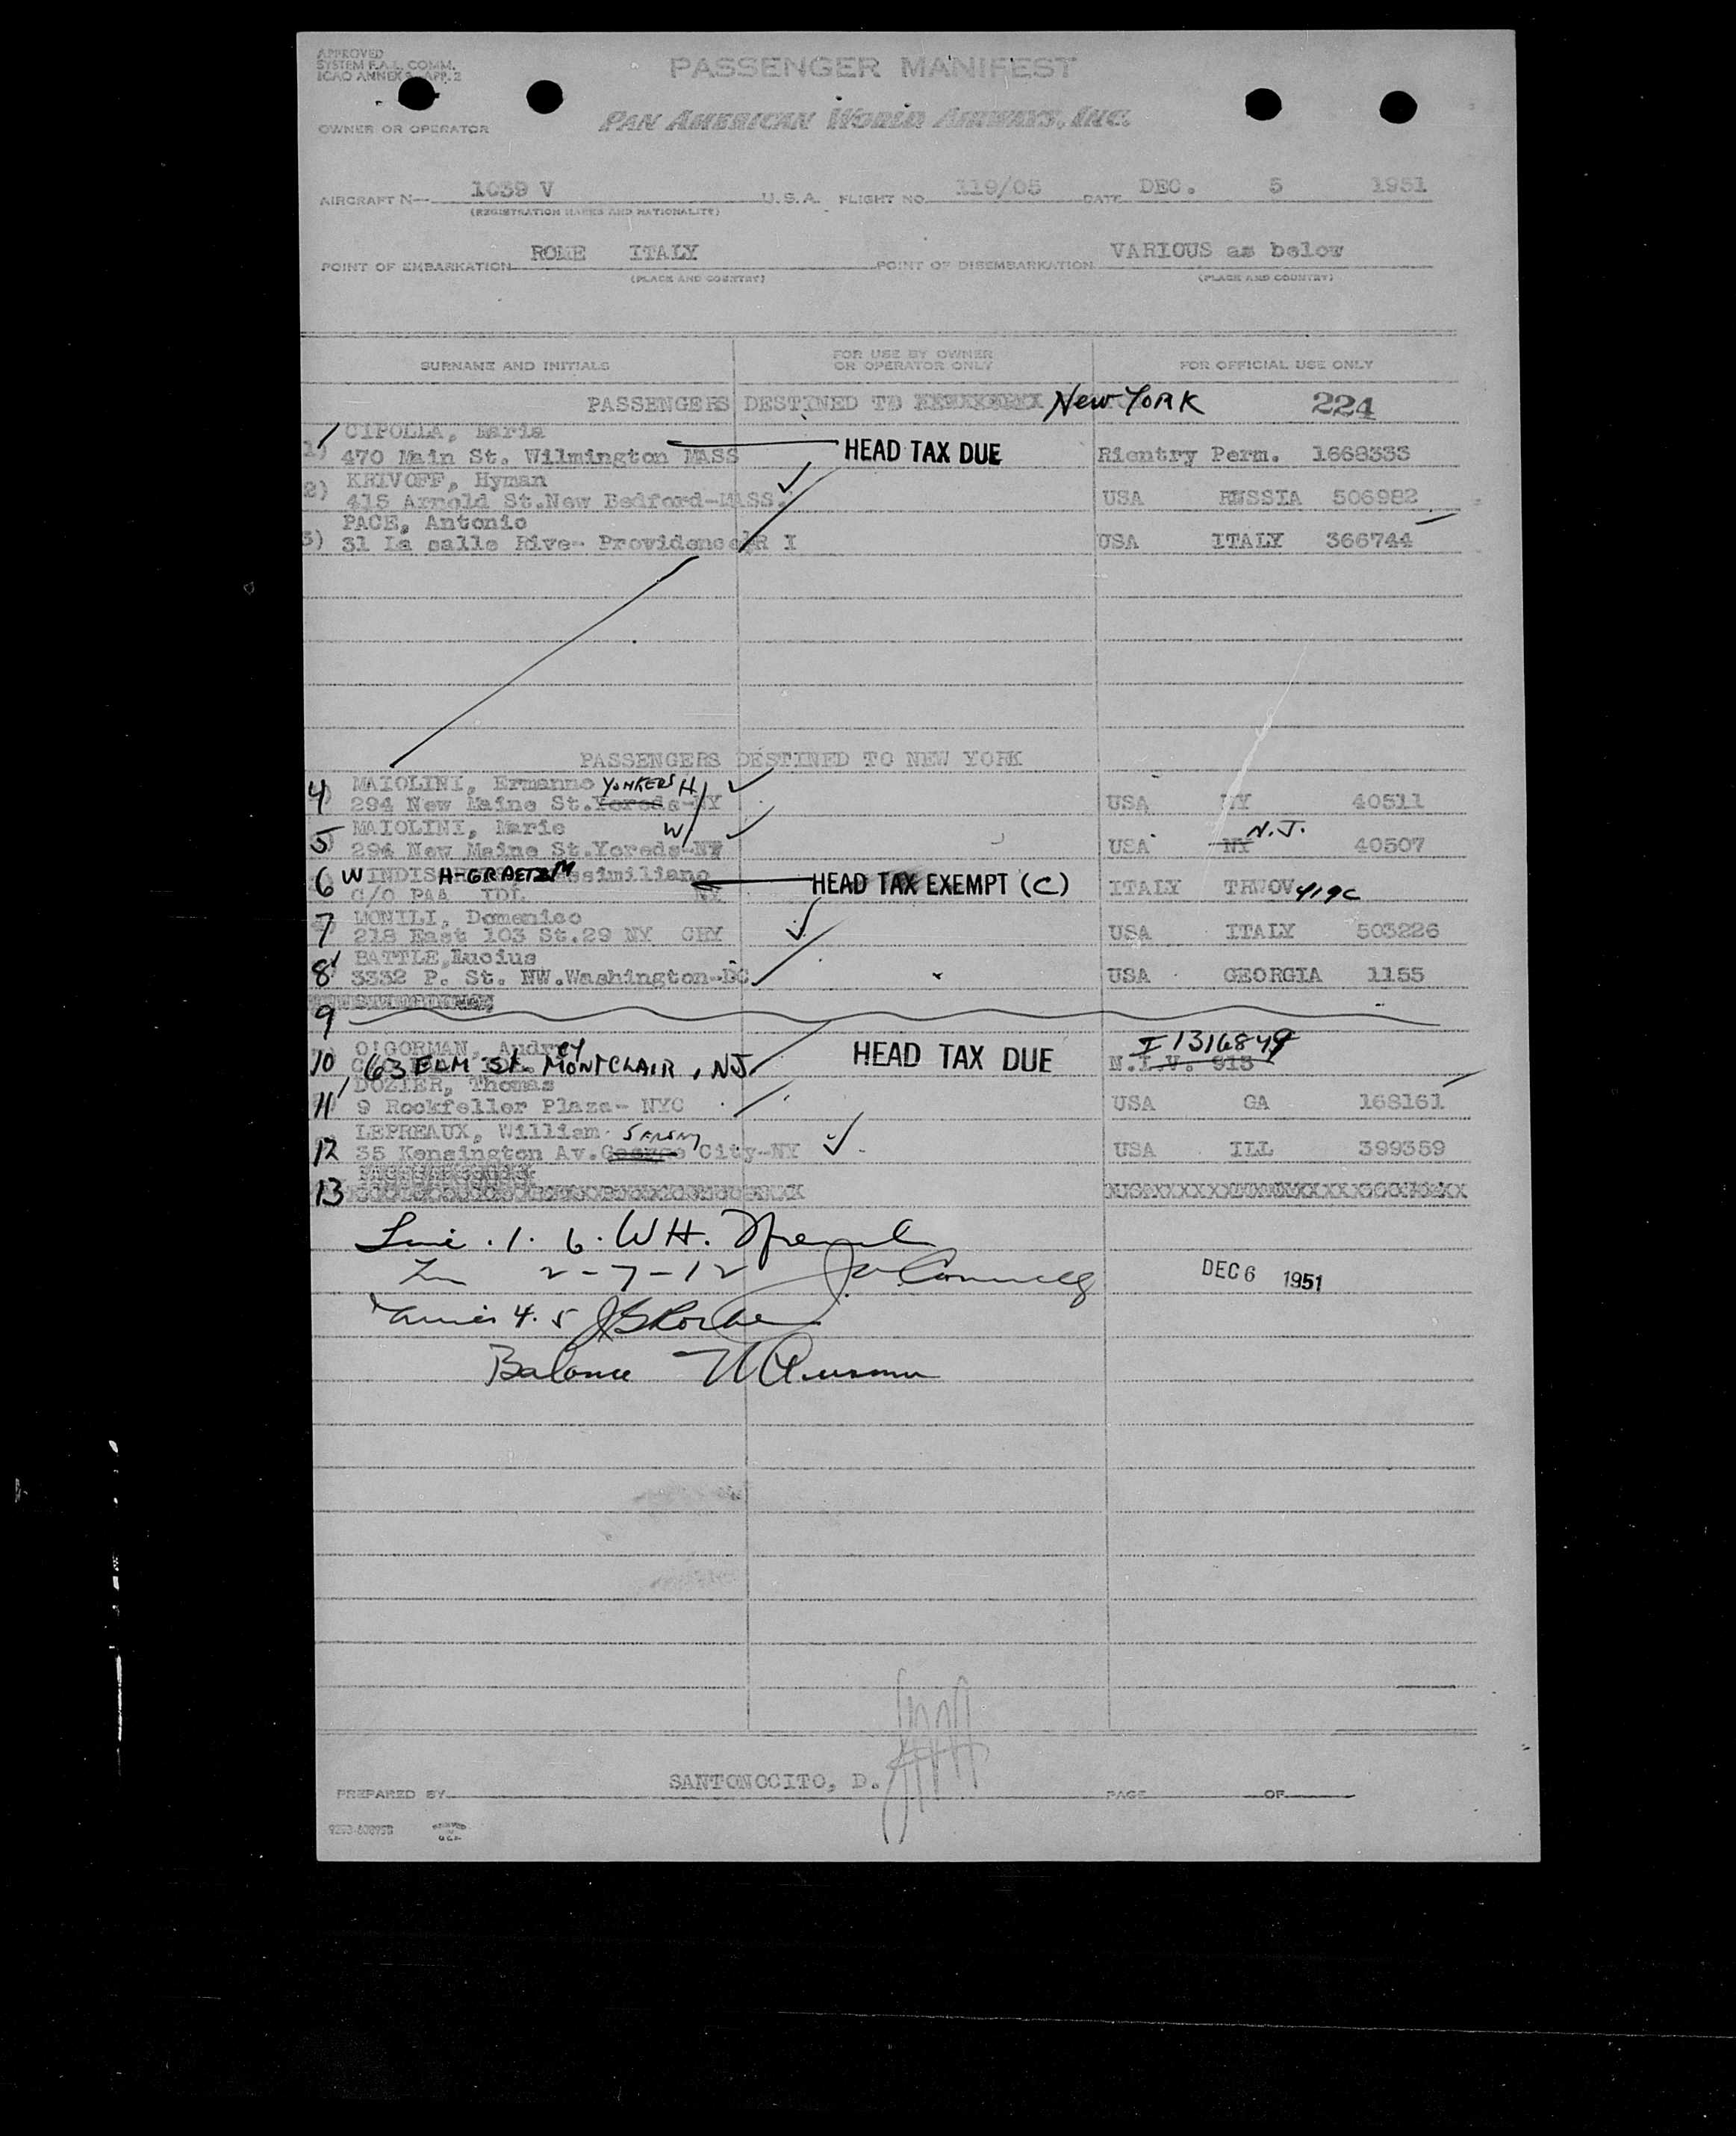 APPROVED
SYSTEM F.A.L. COMM.
ICAO ANNEX 9-APP. 2
PASSENGER MANIFEST
OWNER OR OPERATOR PAN AMERICAN WORLD AIRWAYS, INC.
AIRCRAFT N— 1039 V U.S.A. FLIGHT NO. 119/05 DATE DEC. 5 1951
(REGISTRATION MARKS AND NATIONALITY)
POINT OF EMBARKATION ROME ITALY POINT OF DISEMBARKATION VARIOUS as below
(PLACE AND COUNTRY) (PLACE AND COUNTRY)
SURNAME AND INITIALS FOR USE BY OWNER OR OPERATOR ONLY FOR OFFICIAL USE ONLY
PASSENGERS DESTINED TO New YORK 224
CIPOLLA, Maria
1) 470 Main St. Wilmington MASS HEAD TAX DUE Rientry Perm. 1668333
KRIVOFF, Hyman
2) 415 Arnold St.New Bedford-MASS. USA RUSSIA 506982
PACE, Antonio
3) 31 La salle Rive- Providence R I USA ITALY 366744
PASSENGERS DESTINED TO NEW YORK
MAIOLINI, Ermanno YONKERS H/
4 294 New Maine St.Yoreds-NY USA NY 40511
MAIOLINI, Marie W/ N.J.
5 294 New Maine St.Yoreds-NY USA NY 40507
6 WINDISH-GRAETZ M HEAD TAX EXEMPT (C) ITALY TRWOV 419C
C/O PAA IDL NY
7 MONILI, Domenico
218 East 103 St.29 NY CHY USA ITALY 503226
BATTLE,Lucius
8 3332 P. St. NW.Washington-DC USA GEORGIA 1155
9
O'GORMAN, Audrey I 1316849
10 63 ELM St. MONTCLAIR, NJ. HEAD TAX DUE N.I.V. 913
DOZIER, Thomas
11 9 Rockfeller Plaza- NYC USA GA 168161
LEPREAUX, William
12 35 Kensington Av. City-NY USA ILL 399359
13
Line . 1. 6. WH.
2-7-12 DEC 6 1951
Lines 4. 5
Balance
PREPARED BY SANTONOCITO, D. PAGE OF